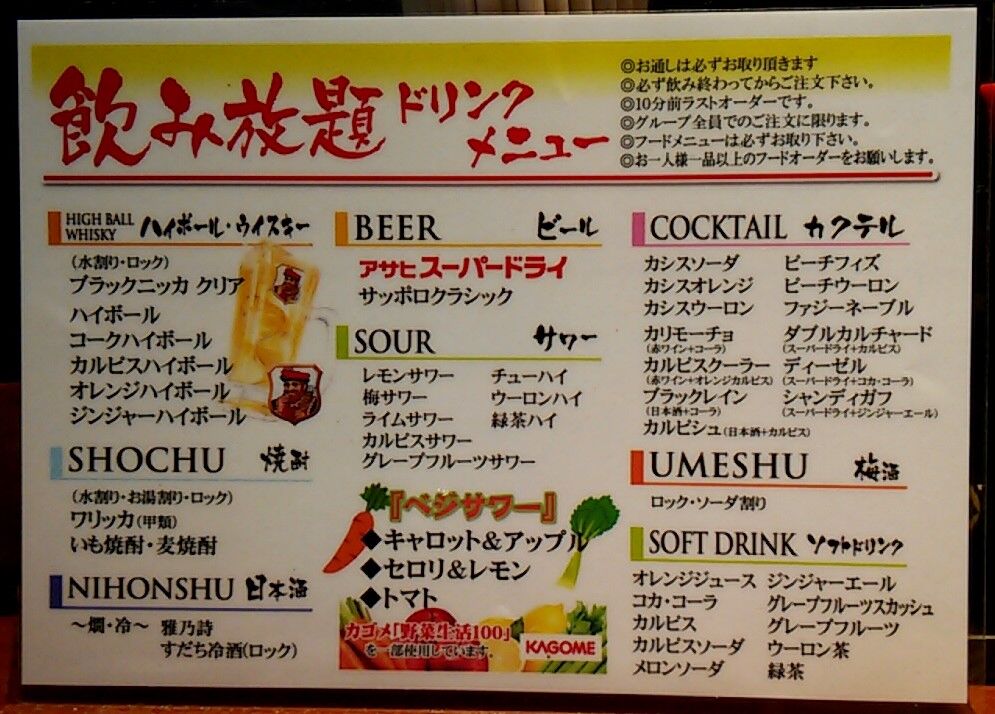 飲み放題ドリンク
メニュー
◎お通しは必ずお取り頂きます
◎必ず飲み終わってからご注文下さい。
◎10分前ラストオーダーです。
◎グループ全員でのご注文に限ります。
◎フードメニューは必ずお取り下さい。
◎お一人様一品以上のフードオーダーをお願いします。
HIGH BALL
WHISKY ハイボール・ウイスキー
（水割り・ロック）
ブラックニッカ クリア
ハイボール
コークハイボール
カルピスハイボール
オレンジハイボール
ジンジャーハイボール
SHOCHU 焼酎
（水割り・お湯割り・ロック）
ワリッカ（甲類）
いも焼酎・麦焼酎
NIHONSHU 日本酒
〜燗・冷〜 雅乃詩
すだち冷酒（ロック）
BEER ビール
アサヒスーパードライ
サッポロクラシック
SOUR サワー
レモンサワー チューハイ
梅サワー ウーロンハイ
ライムサワー 緑茶ハイ
カルピスサワー
グレープフルーツサワー
『ベジサワー』
◆キャロット＆アップル
◆セロリ＆レモン
◆トマト
カゴメ「野菜生活100」
を一部使用しています。
KAGOME
COCKTAIL カクテル
カシスソーダ ピーチフィズ
カシスオレンジ ピーチウーロン
カシスウーロン ファジーネーブル
カリモーチョ ダブルカルチャード
（赤ワイン+コーラ） （スーパードライ+カルピス）
カルピスクーラー ディーゼル
（赤ワイン+オレンジカルピス） （スーパードライ+コカ・コーラ）
ブラックレイン シャンディガフ
（日本酒+コーラ） （スーパードライ+ジンジャーエール）
カルピシュ（日本酒+カルピス）
UMESHU 梅酒
ロック・ソーダ割り
SOFT DRINK ソフトドリンク
オレンジジュース ジンジャーエール
コカ・コーラ グレープフルーツスカッシュ
カルピス グレープフルーツ
カルピスソーダ ウーロン茶
メロンソーダ 緑茶